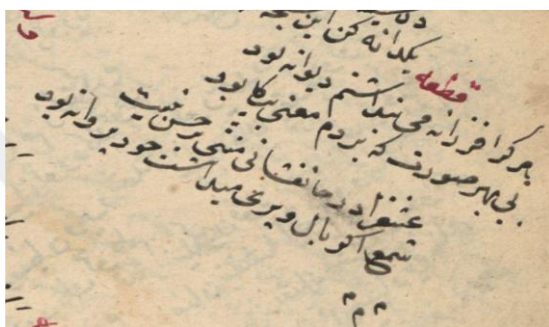 یکدانه کن این
قطعه
هر کرا فرزانه می پنداشتم دیوانه بود
پی بهر صورت که بردم معنی بیکانه بود
عشق را در جانفشانی منتی بر حسن نیست
شمع اکر بال و پری میداشت خود پروانه بود